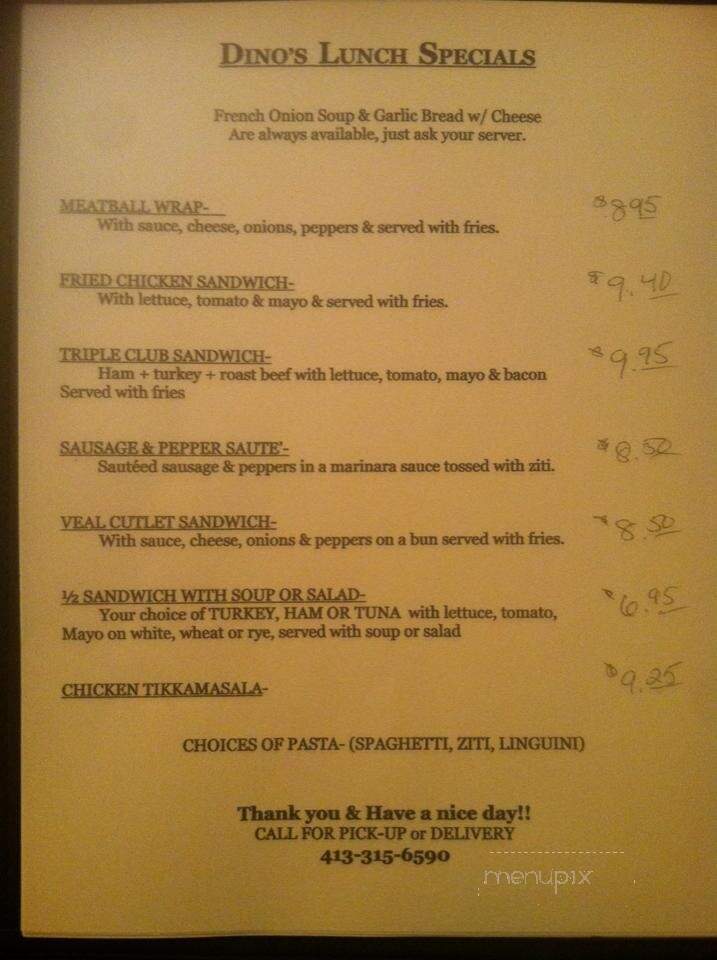 DINO'S LUNCH SPECIALS
French Onion Soup & Garlic Bread w/ Cheese
Are always available, just ask your server.
MEATBALL WRAP- $8.95
With sauce, cheese, onions, peppers & served with fries.
FRIED CHICKEN SANDWICH- $9.40
With lettuce, tomato & mayo & served with fries.
TRIPLE CLUB SANDWICH- $9.95
Ham + turkey + roast beef with lettuce, tomato, mayo & bacon
Served with fries
SAUSAGE & PEPPER SAUTE'- $8.50
Sautéed sausage & peppers in a marinara sauce tossed with ziti.
VEAL CUTLET SANDWICH- $8.50
With sauce, cheese, onions & peppers on a bun served with fries.
½ SANDWICH WITH SOUP OR SALAD- $6.95
Your choice of TURKEY, HAM OR TUNA with lettuce, tomato,
Mayo on white, wheat or rye, served with soup or salad
CHICKEN TIKKAMASALA- $9.25
CHOICES OF PASTA- (SPAGHETTI, ZITI, LINGUINI)
Thank you & Have a nice day!!
CALL FOR PICK-UP or DELIVERY
413-315-6590
menupix